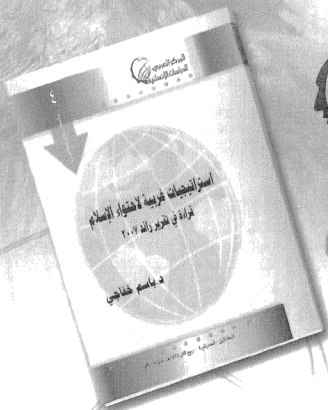 المركز العربي
للدراسات الإنسانية
٤
استراتيجيات غربية لاحتواء الإسلام
قراءة في تقرير راند ٢٠٠٧
د. باسم خفاجي